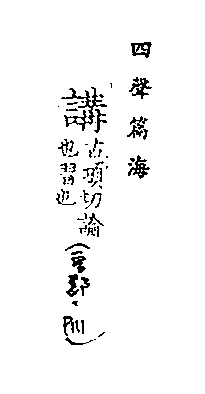 四聲篇海
講
古項切論
也習也
(言部、